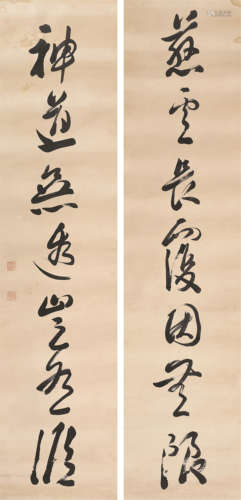 慈雲長覆因無限
神道無豈有涯